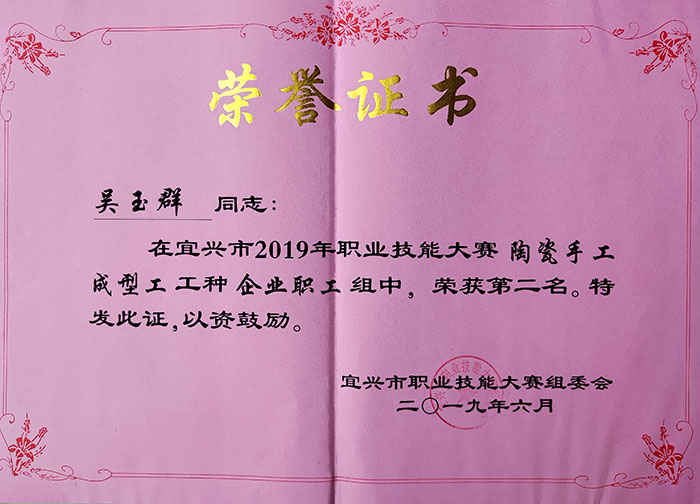 荣誉证书
吴玉群 同志：
在宜兴市2019年职业技能大赛 陶瓷手工
成型工 工种 企业职工 组中，荣获第二名。特
发此证，以资鼓励。
宜兴市职业技能大赛组委会
二〇一九年六月